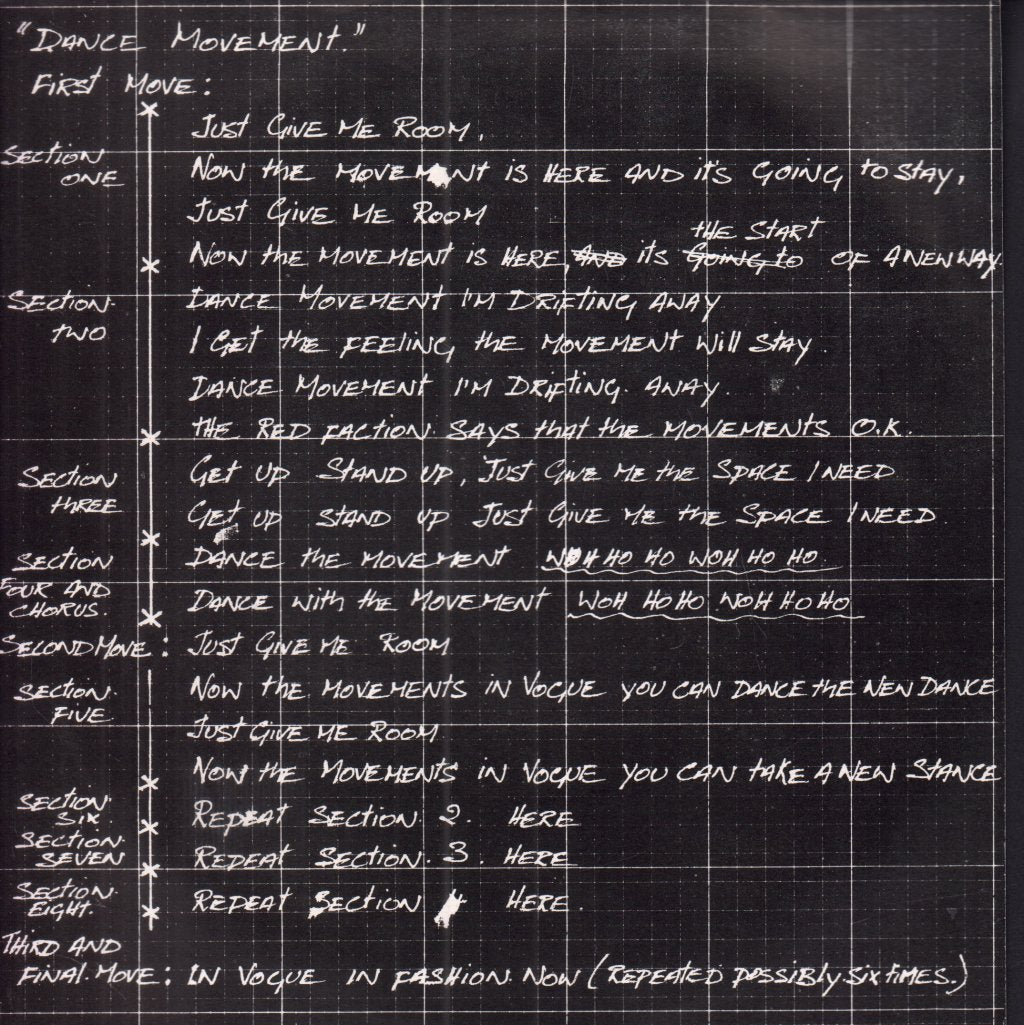 "DANCE MOVEMENT."
FIRST MOVE:
JUST GIVE ME ROOM,
SECTION ONE
NOW THE MOVEMENT IS HERE AND IT'S GOING TO STAY,
JUST GIVE ME ROOM
THE START
NOW THE MOVEMENT IS HERE, AND ITS GOING TO OF A NEW WAY.
SECTION TWO
DANCE MOVEMENT I'M DRIFTING AWAY
I GET THE FEELING, THE MOVEMENT WILL STAY.
DANCE MOVEMENT I'M DRIFTING. AWAY.
THE RED FACTION. SAYS THAT THE MOVEMENTS O.K.
SECTION THREE
GET UP STAND UP, JUST GIVE ME THE SPACE I NEED
GET UP STAND UP JUST GIVE ME THE SPACE I NEED.
SECTION FOUR AND CHORUS.
DANCE THE MOVEMENT WOH HO HO WOH HO HO
DANCE WITH THE MOVEMENT WOH HO HO WOH HO HO
SECOND MOVE: JUST GIVE ME ROOM
SECTION. FIVE
NOW THE MOVEMENTS IN VOGUE YOU CAN DANCE THE NEW DANCE
JUST GIVE ME ROOM
NOW THE MOVEMENTS IN VOGUE YOU CAN TAKE A NEW STANCE
SECTION. SIX.
REPEAT SECTION. 2. HERE
SECTION. SEVEN
REPEAT SECTION. 3. HERE
SECTION. EIGHT.
REPEAT SECTION 4 HERE.
THIRD AND
FINAL. MOVE: IN VOGUE IN FASHION NOW (REPEATED POSSIBLY SIX TIMES.)